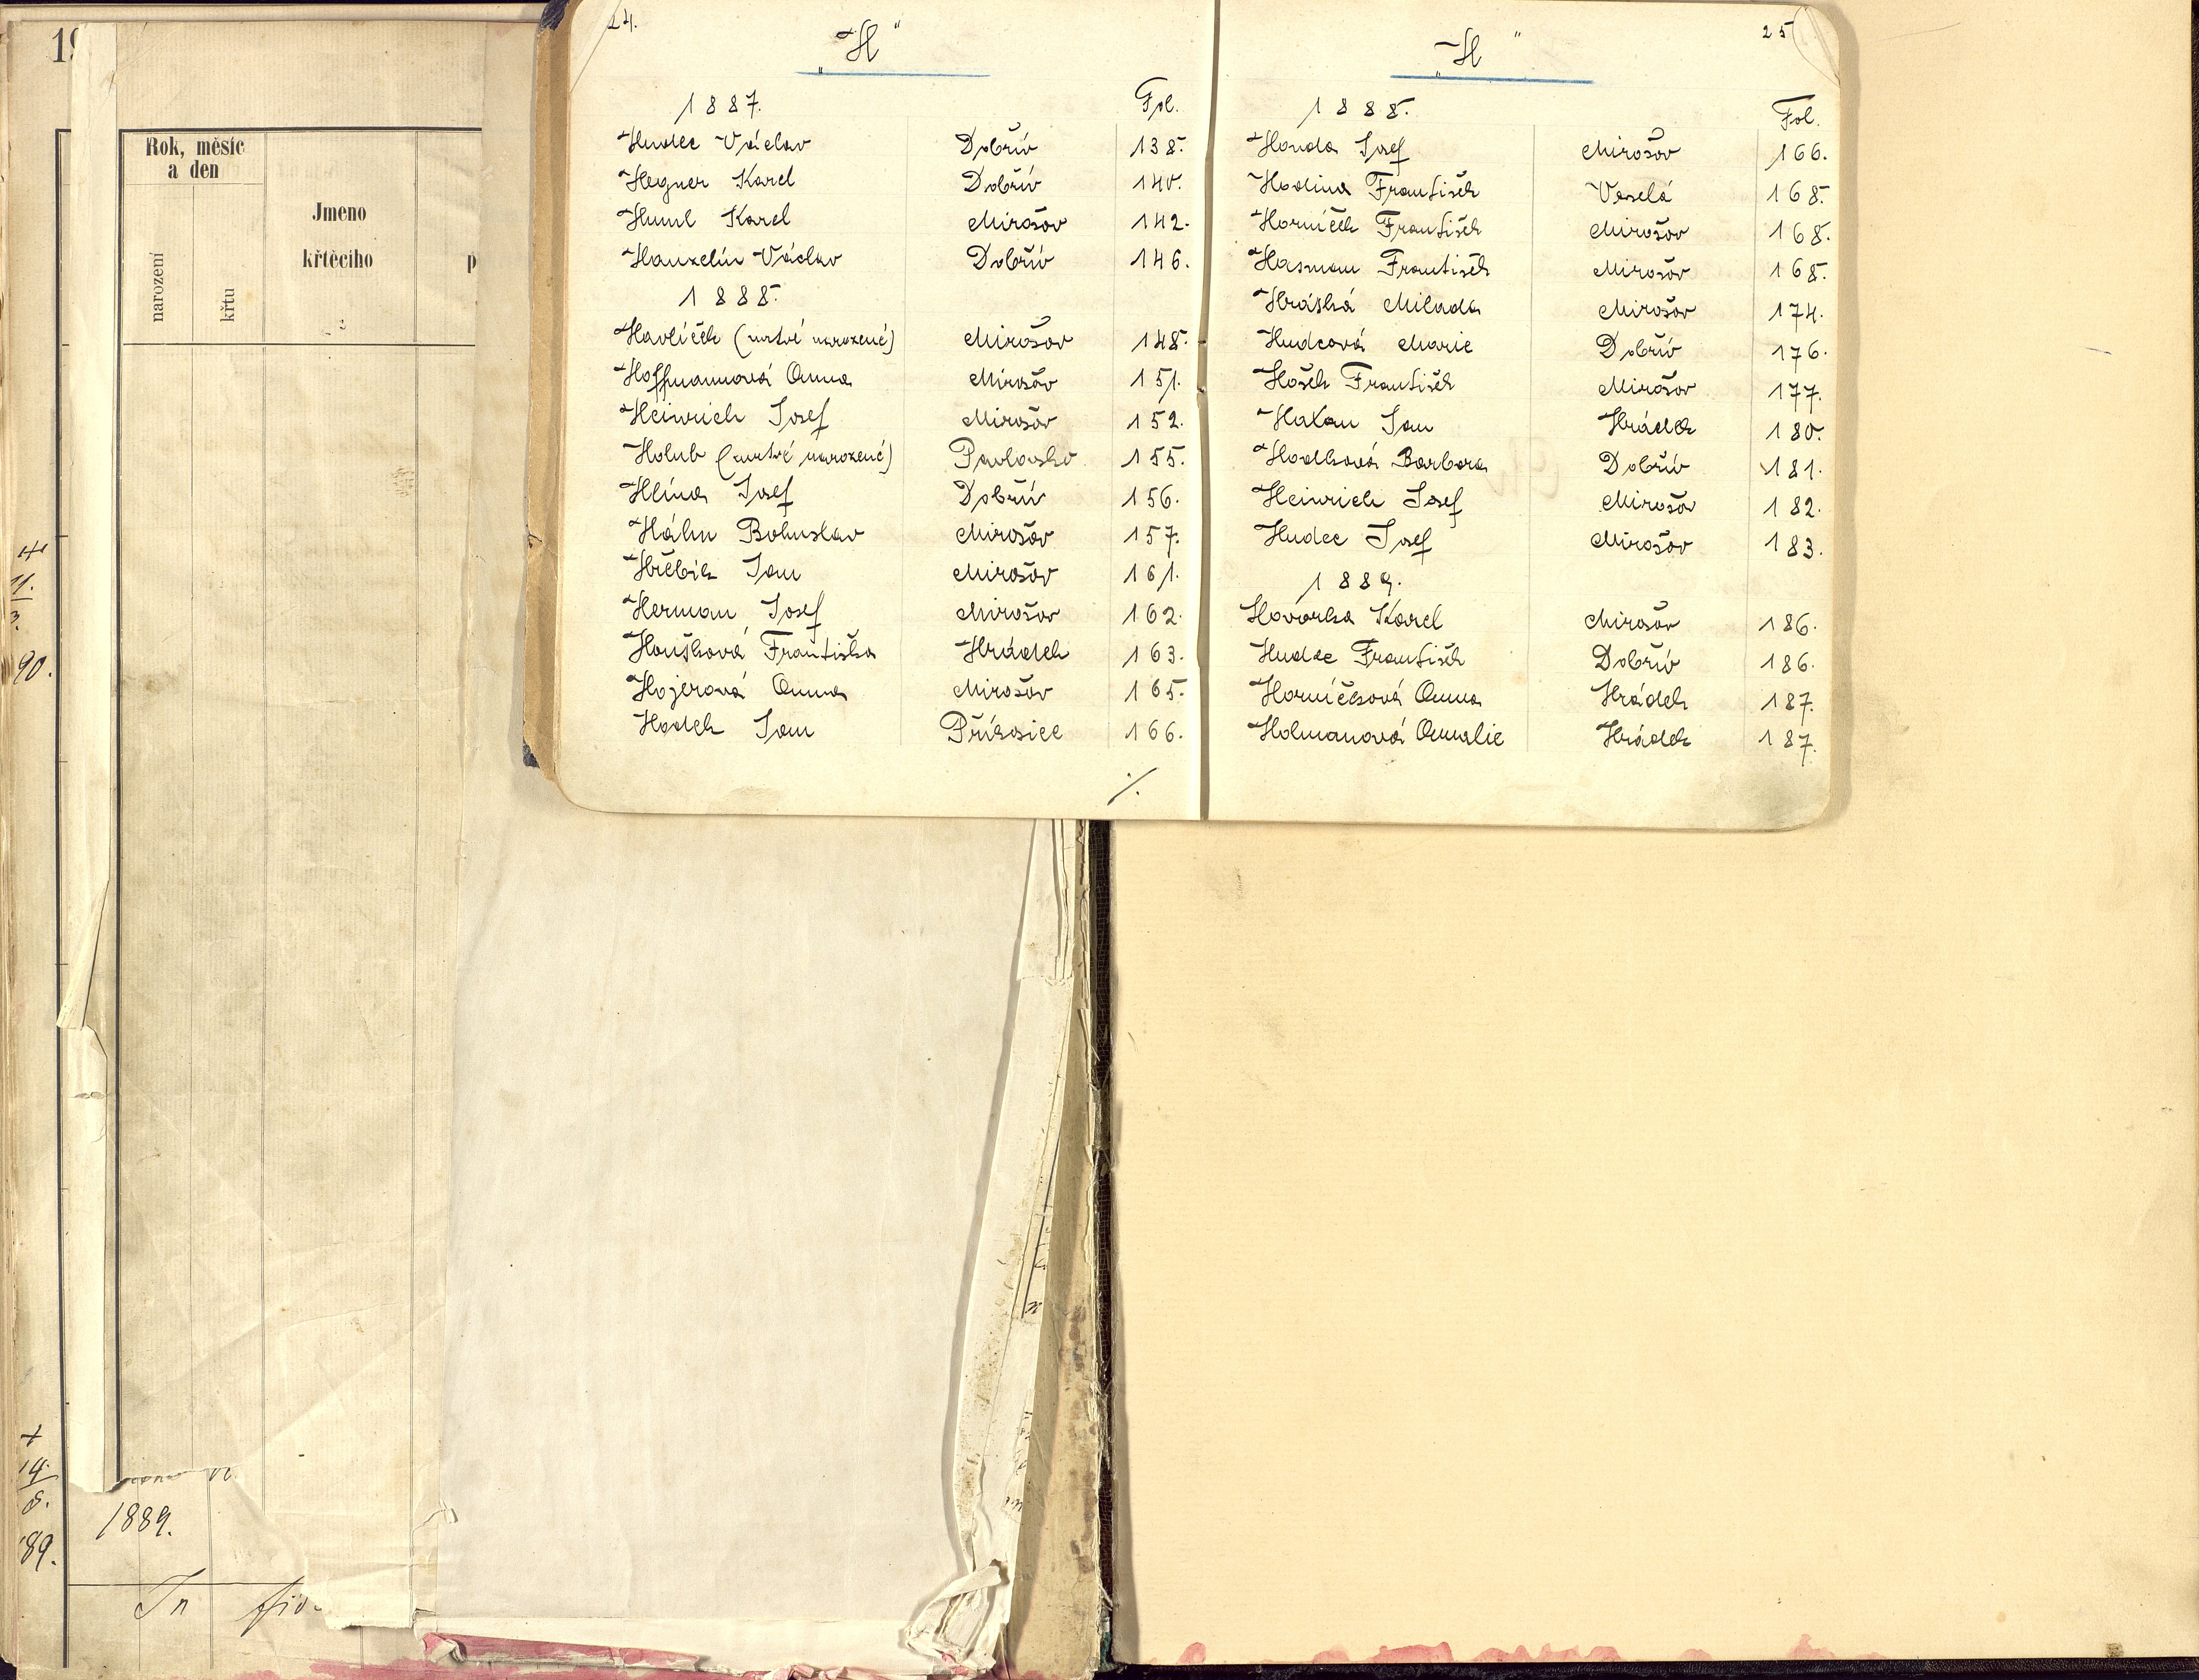 24.
„H“
1887. Fol.
Hudec Václav Dobřív 138.
Hegner Karel Dobřív 140.
Huml Karel Mirošov 142.
Hanzelín Václav Dobřív 146.
1888.
Havlíček (mrtvě narozené) Mirošov 148.
Hoffmannová Anna Mirošov 151.
Heinrich Josef Mirošov 152.
Holub (mrtvě narozené) Pavlovsko 155.
Hlína Josef Dobřív 156.
Hálm Bohuslav Mirošov 157.
Hřebík Jan Mirošov 161.
Herman Josef Mirošov 162.
Houšková Františka Hrádek 163.
Hojerová Anna Mirošov 165.
Hodek Jan Příkosice 166.
./.
25
„H“
1888. Fol.
Honda Josef Mirošov 166.
Hodina František Veselá 168.
Horníček František Mirošov 168.
Hasman František Mirošov 168.
Hráská Milada Mirošov 174.
Hudcová Marie Dobřív 176.
Hošek František Mirošov 177.
Hakan Jan Hrádek 180.
Hodková Barbora Dobřív 181.
Heinrich Josef Mirošov 182.
Hudec Josef Mirošov 183.
1889.
Hovorka Karel Mirošov 186.
Hudec František Dobřív 186.
Horníčková Anna Hrádek 187.
Holmanová Amalie Hrádek 187.
19
Rok, měsíc
a den
narození
křtu
Jmeno
křtěciho
2
p
+
11.
3.
90.
+
14.
8.
89.
1889.
In